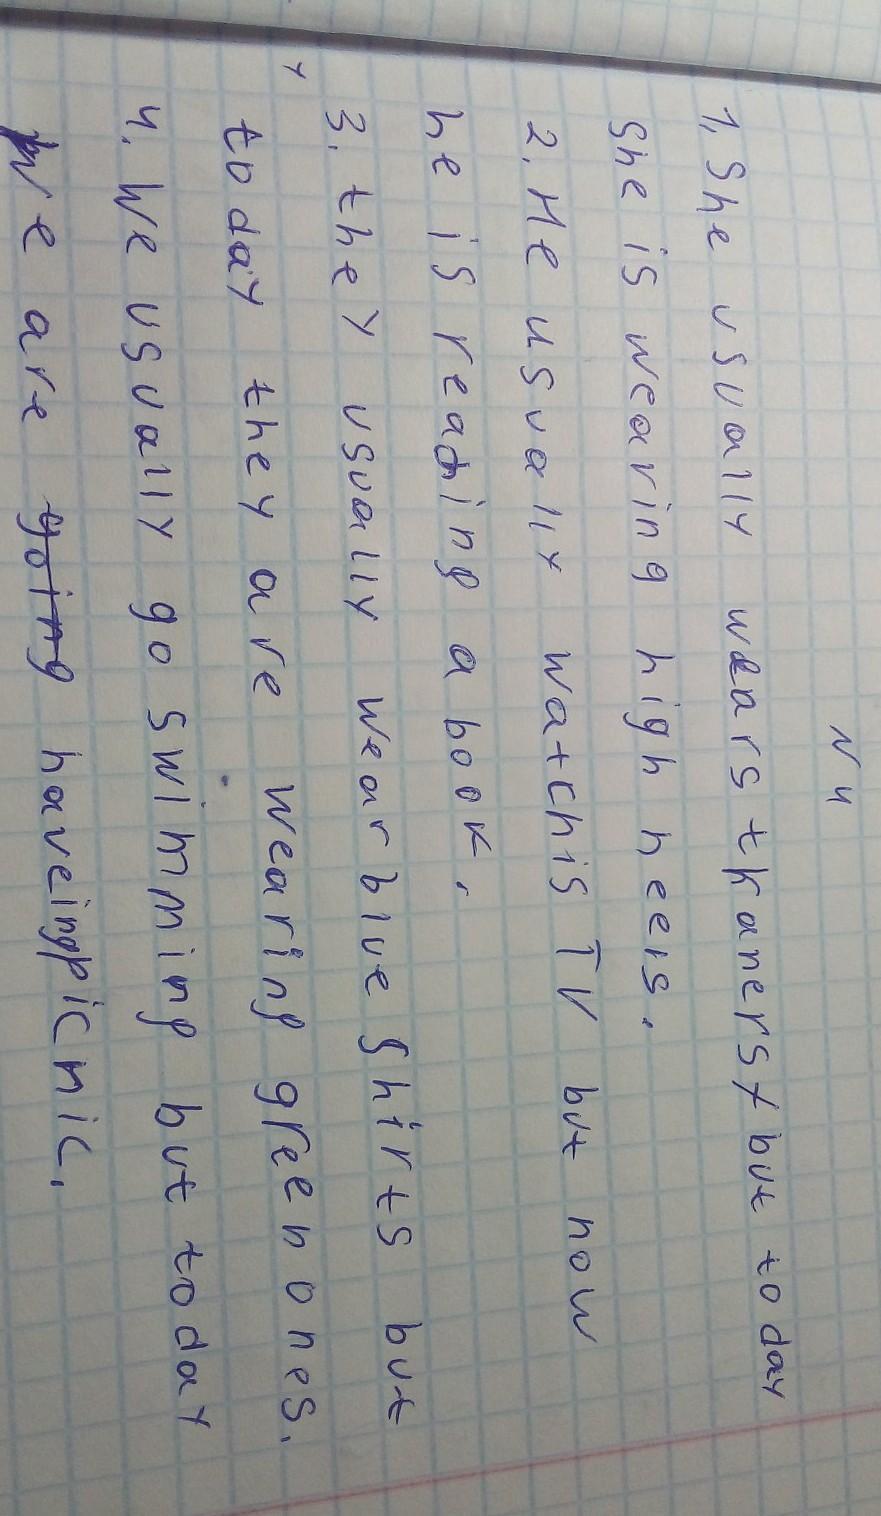 N 4
1. She usually wears tkaners but today
she is wearing high heels.
2. He usually watchis TV but now
he is reading a book.
3. they usually wear blue shirts but
today they are wearing green ones.
4. We usually go swimming but today
We are going haveing picnic.